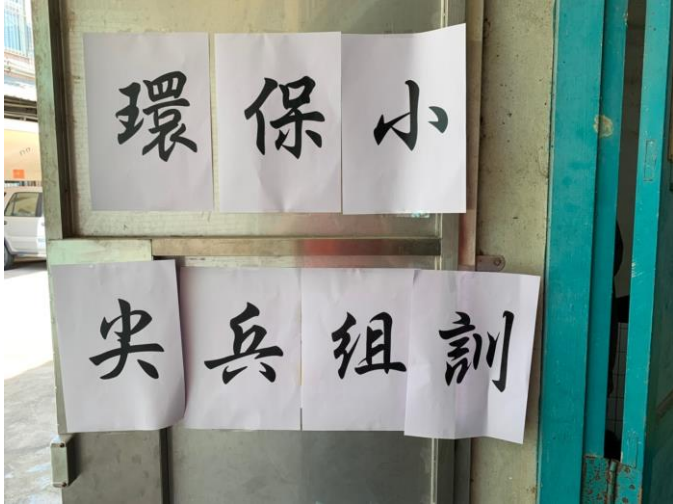 環保小
尖兵組訓